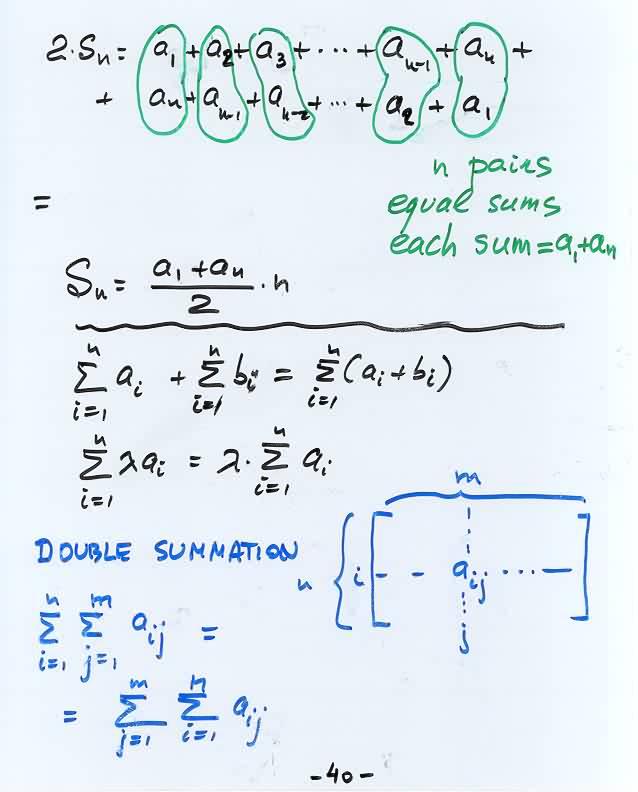 2·Sₙ = a₁ + a₂ + a₃ + ··· + aₙ₋₁ + aₙ +
+ aₙ + aₙ₋₁ + aₙ₋₂ + ··· + a₂ + a₁
n pairs
=
equal sums
each sum = a₁+aₙ
Sₙ = (a₁ + aₙ)/2 · n
∑_{i=1}^{n} aᵢ + ∑_{i=1}^{n} bᵢ = ∑_{i=1}^{n} (aᵢ + bᵢ)
∑_{i=1}^{n} λaᵢ = λ· ∑_{i=1}^{n} aᵢ
m
DOUBLE SUMMATION
n { i [ - - a_{ij} ··· — ]
j
∑_{i=1}^{n} ∑_{j=1}^{m} a_{ij} =
= ∑_{j=1}^{m} ∑_{i=1}^{n} a_{ij}
-40-